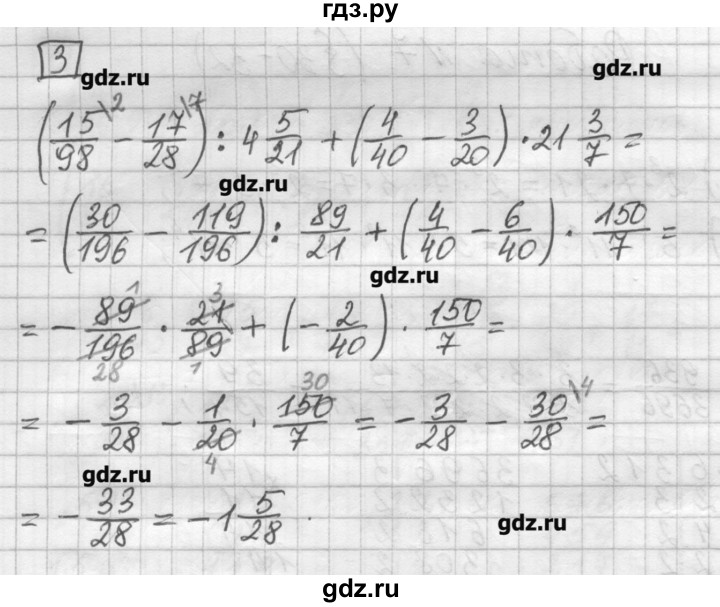 гдз.ру
3
gdz.ru
gdz.ru
(15/98 \2 − 17/28 \7) : 4 5/21 + (4/40 − 3/20) · 21 3/7 =
gdz.ru
= (30/196 − 119/196) : 89/21 + (4/40 − 6/40) · 150/7 =
gdz.ru
= − 89/196 · 21/89 + (− 2/40) · 150/7 =
1 3
28 1
30
= − 3/28 − 1/20 · 150/7 = − 3/28 − 30/28 \4 =
4
gdz.ru
= − 33/28 = −1 5/28 .
gdz.ru
gdz.ru